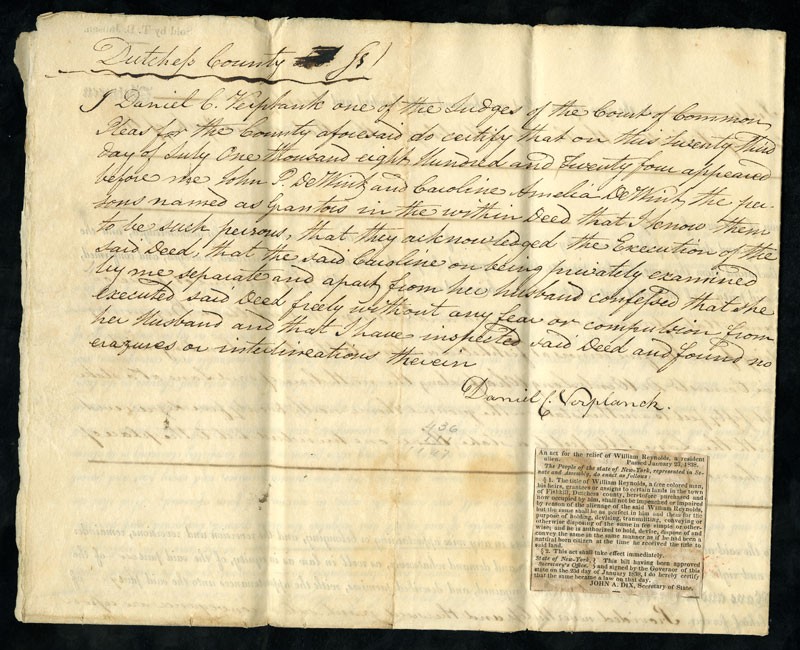 Dutchess County ss
I Daniel C. Verplank one of the Judges of the Court of Common
Pleas for the County aforesaid do certify that on this twenty third
day of July One thousand eight Hundred and twenty four appeared
before me John P. DeWint and Caroline Amelia DeWint, the per-
sons named as Grantors in the within Deed that I know them
to be such persons, that they acknowledged the Execution of the
said Deed, that the said Caroline on being privately examined
by me separate and apart from her husband confessed that she
executed said Deed freely without any fear or compulsion from
her Husband and that I have inspected said Deed and found no
erazures or interlineations therein
Daniel C. Verplanck.
An act for the relief of William Reynolds, a resident
alien. Passed January 23, 1838.
The People of the state of New-York, represented in Se-
nate and Assembly, do enact as follows:
§ 1. The title of William Reynolds, a free colored man,
his heirs, grantees or assigns to certain lands in the town
of Fishkill, Dutchess county, heretofore purchased and
now occupied by him, shall not be impeached or impaired
by reason of the alienage of the said William Reynolds,
but the same shall be as perfect in him and them for the
purpose of holding, devising, transmitting, conveying or
otherwise disposing of the same in fee simple or other-
wise; and he is authorized to hold, devise, dispose of and
convey the same in the same manner as if he had been a
natural born citizen at the time he received the title to
said land.
§ 2. This act shall take effect immediately.
State of New-York, } This bill having been approved
Secretary's Office. } and signed by the Governor of this
state on the 23d day of January 1838, I do hereby certify
that the same became a law on that day.
JOHN A. DIX, Secretary of State.